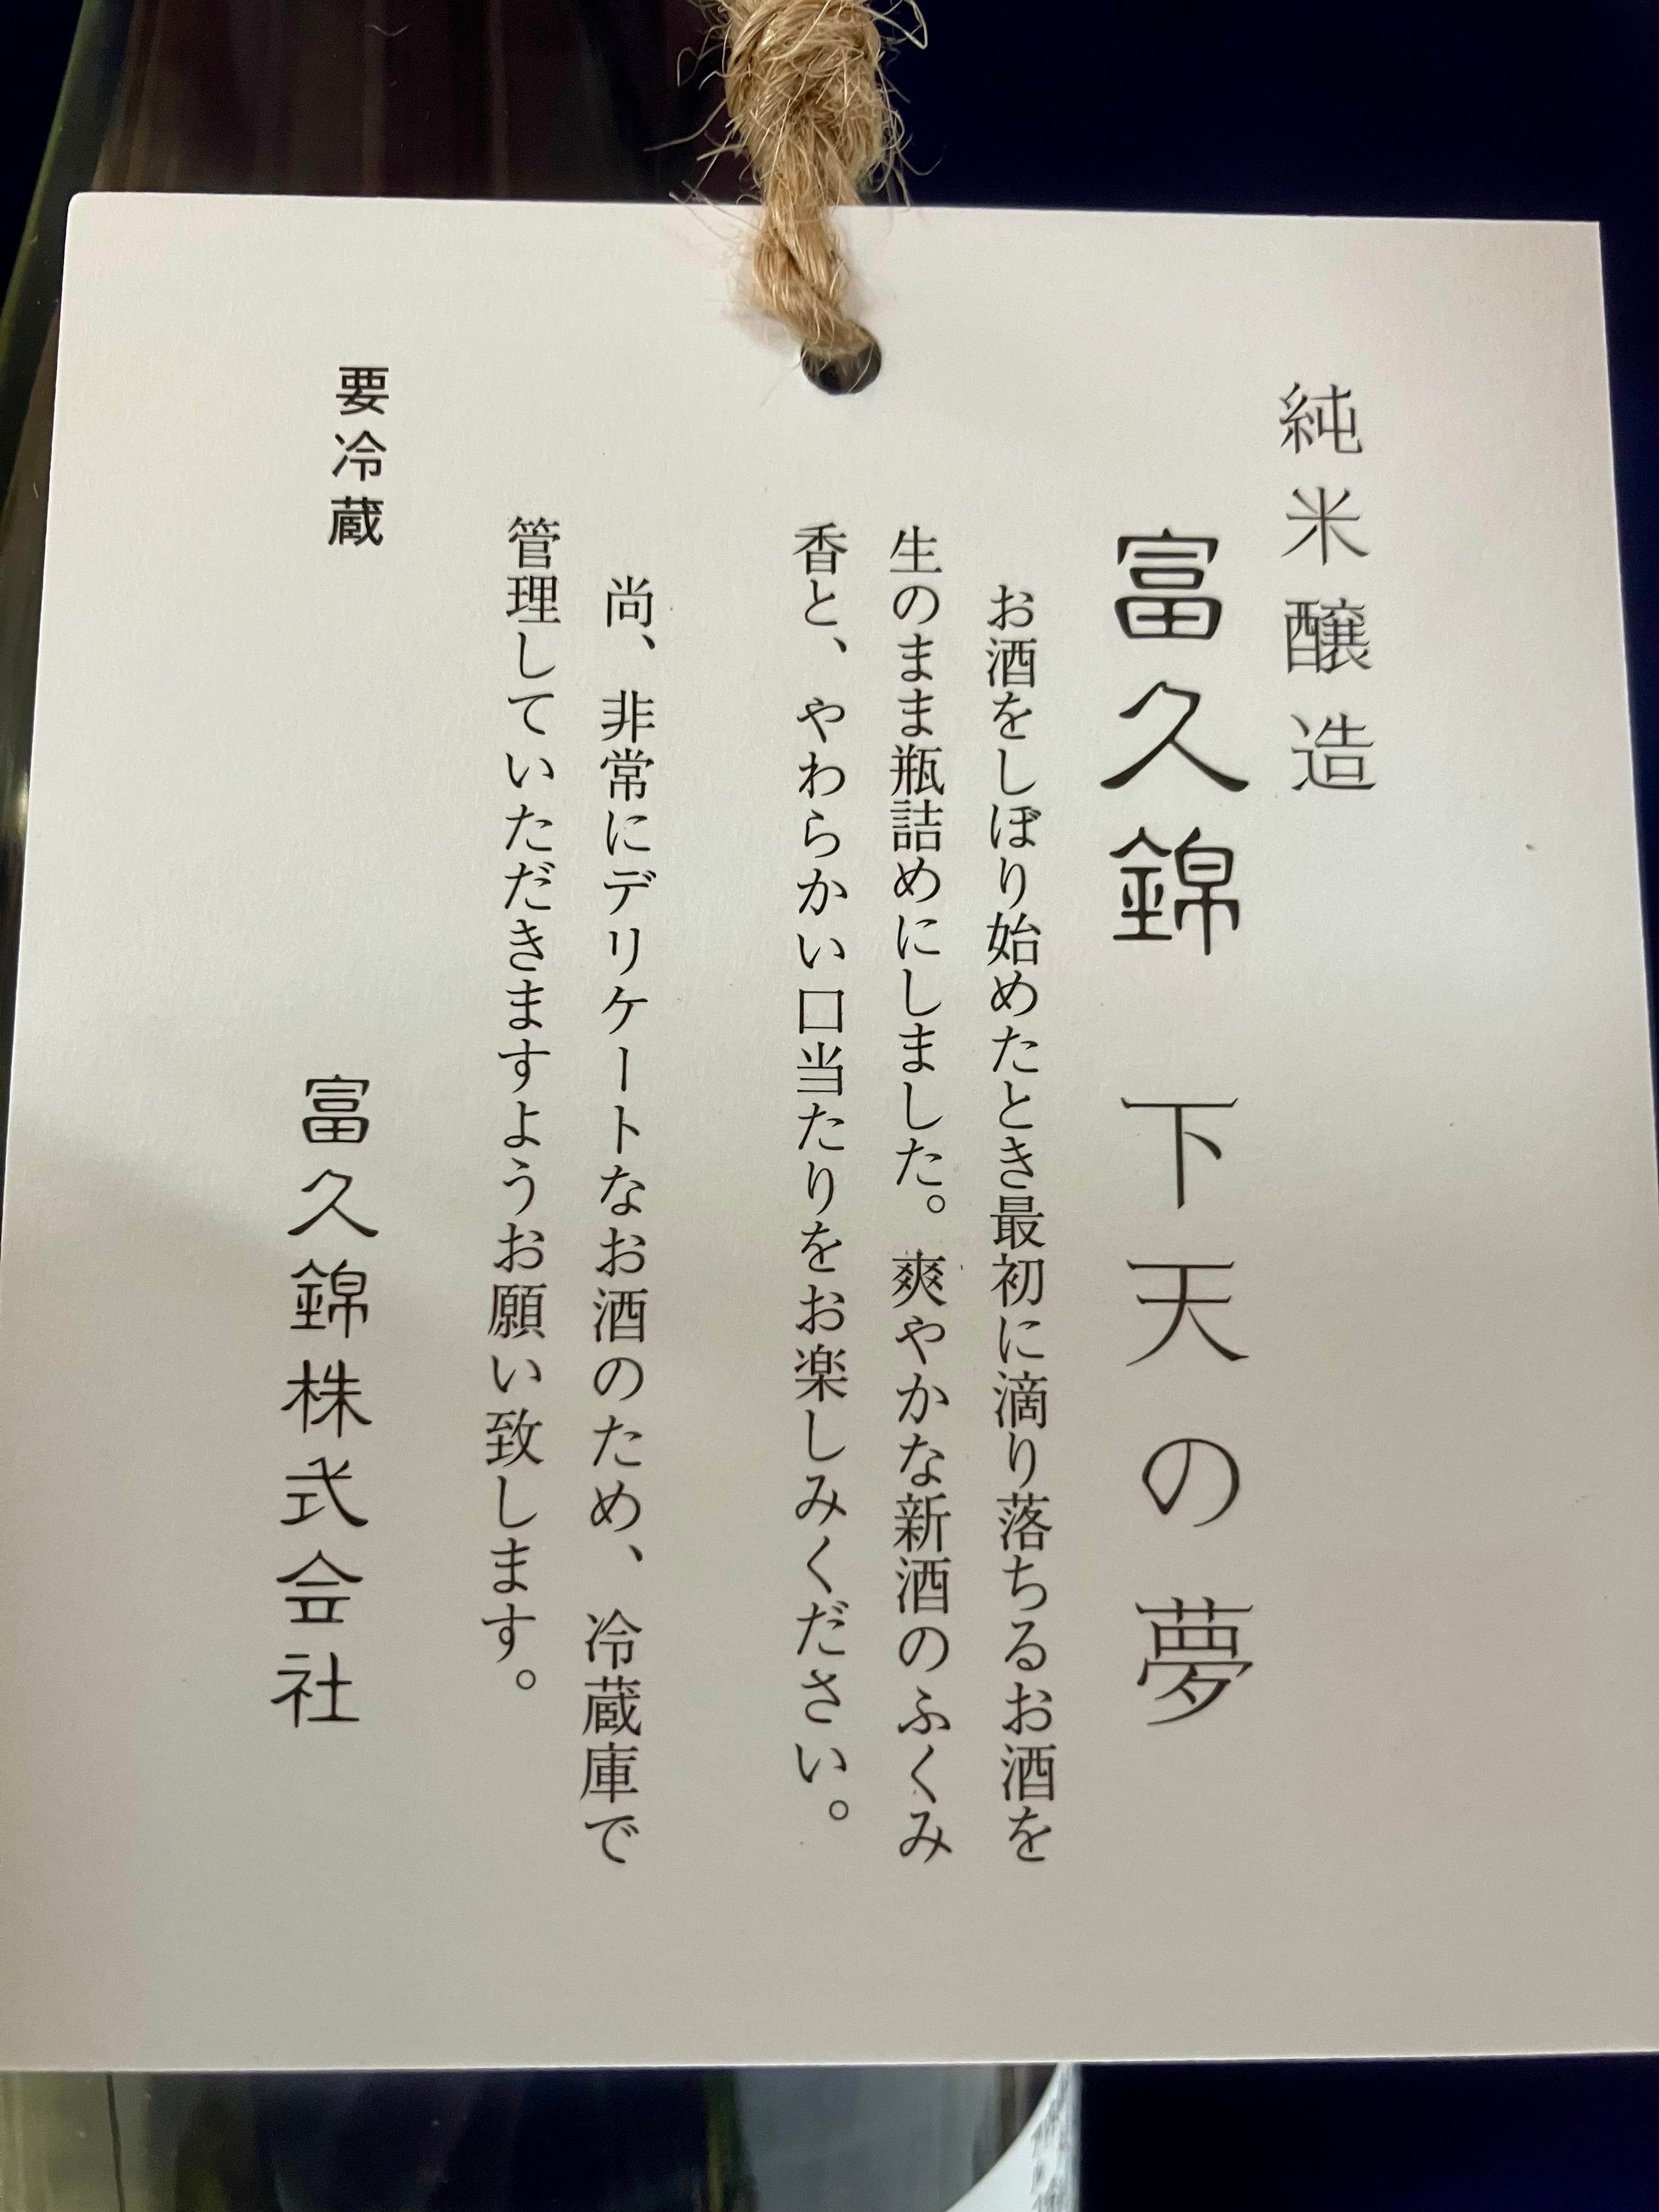 純米醸造
富久錦 下天の夢
お酒をしぼり始めたとき最初に滴り落ちるお酒を
生のまま瓶詰めにしました。爽やかな新酒のふくみ
香と、やわらかい口当たりをお楽しみください。
尚、非常にデリケートなお酒のため、冷蔵庫で
管理していただきますようお願い致します。
要冷蔵
富久錦株式会社